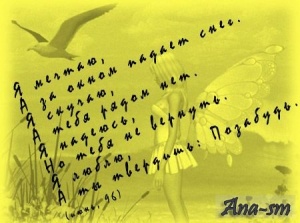 Я мечтаю,
А за окном падает снег.
Я скучаю,
А тебя рядом нет.
Я надеюсь,
Но тебя не вернуть.
Я люблю,
А ты твердишь: Позабудь.
Ana-sm